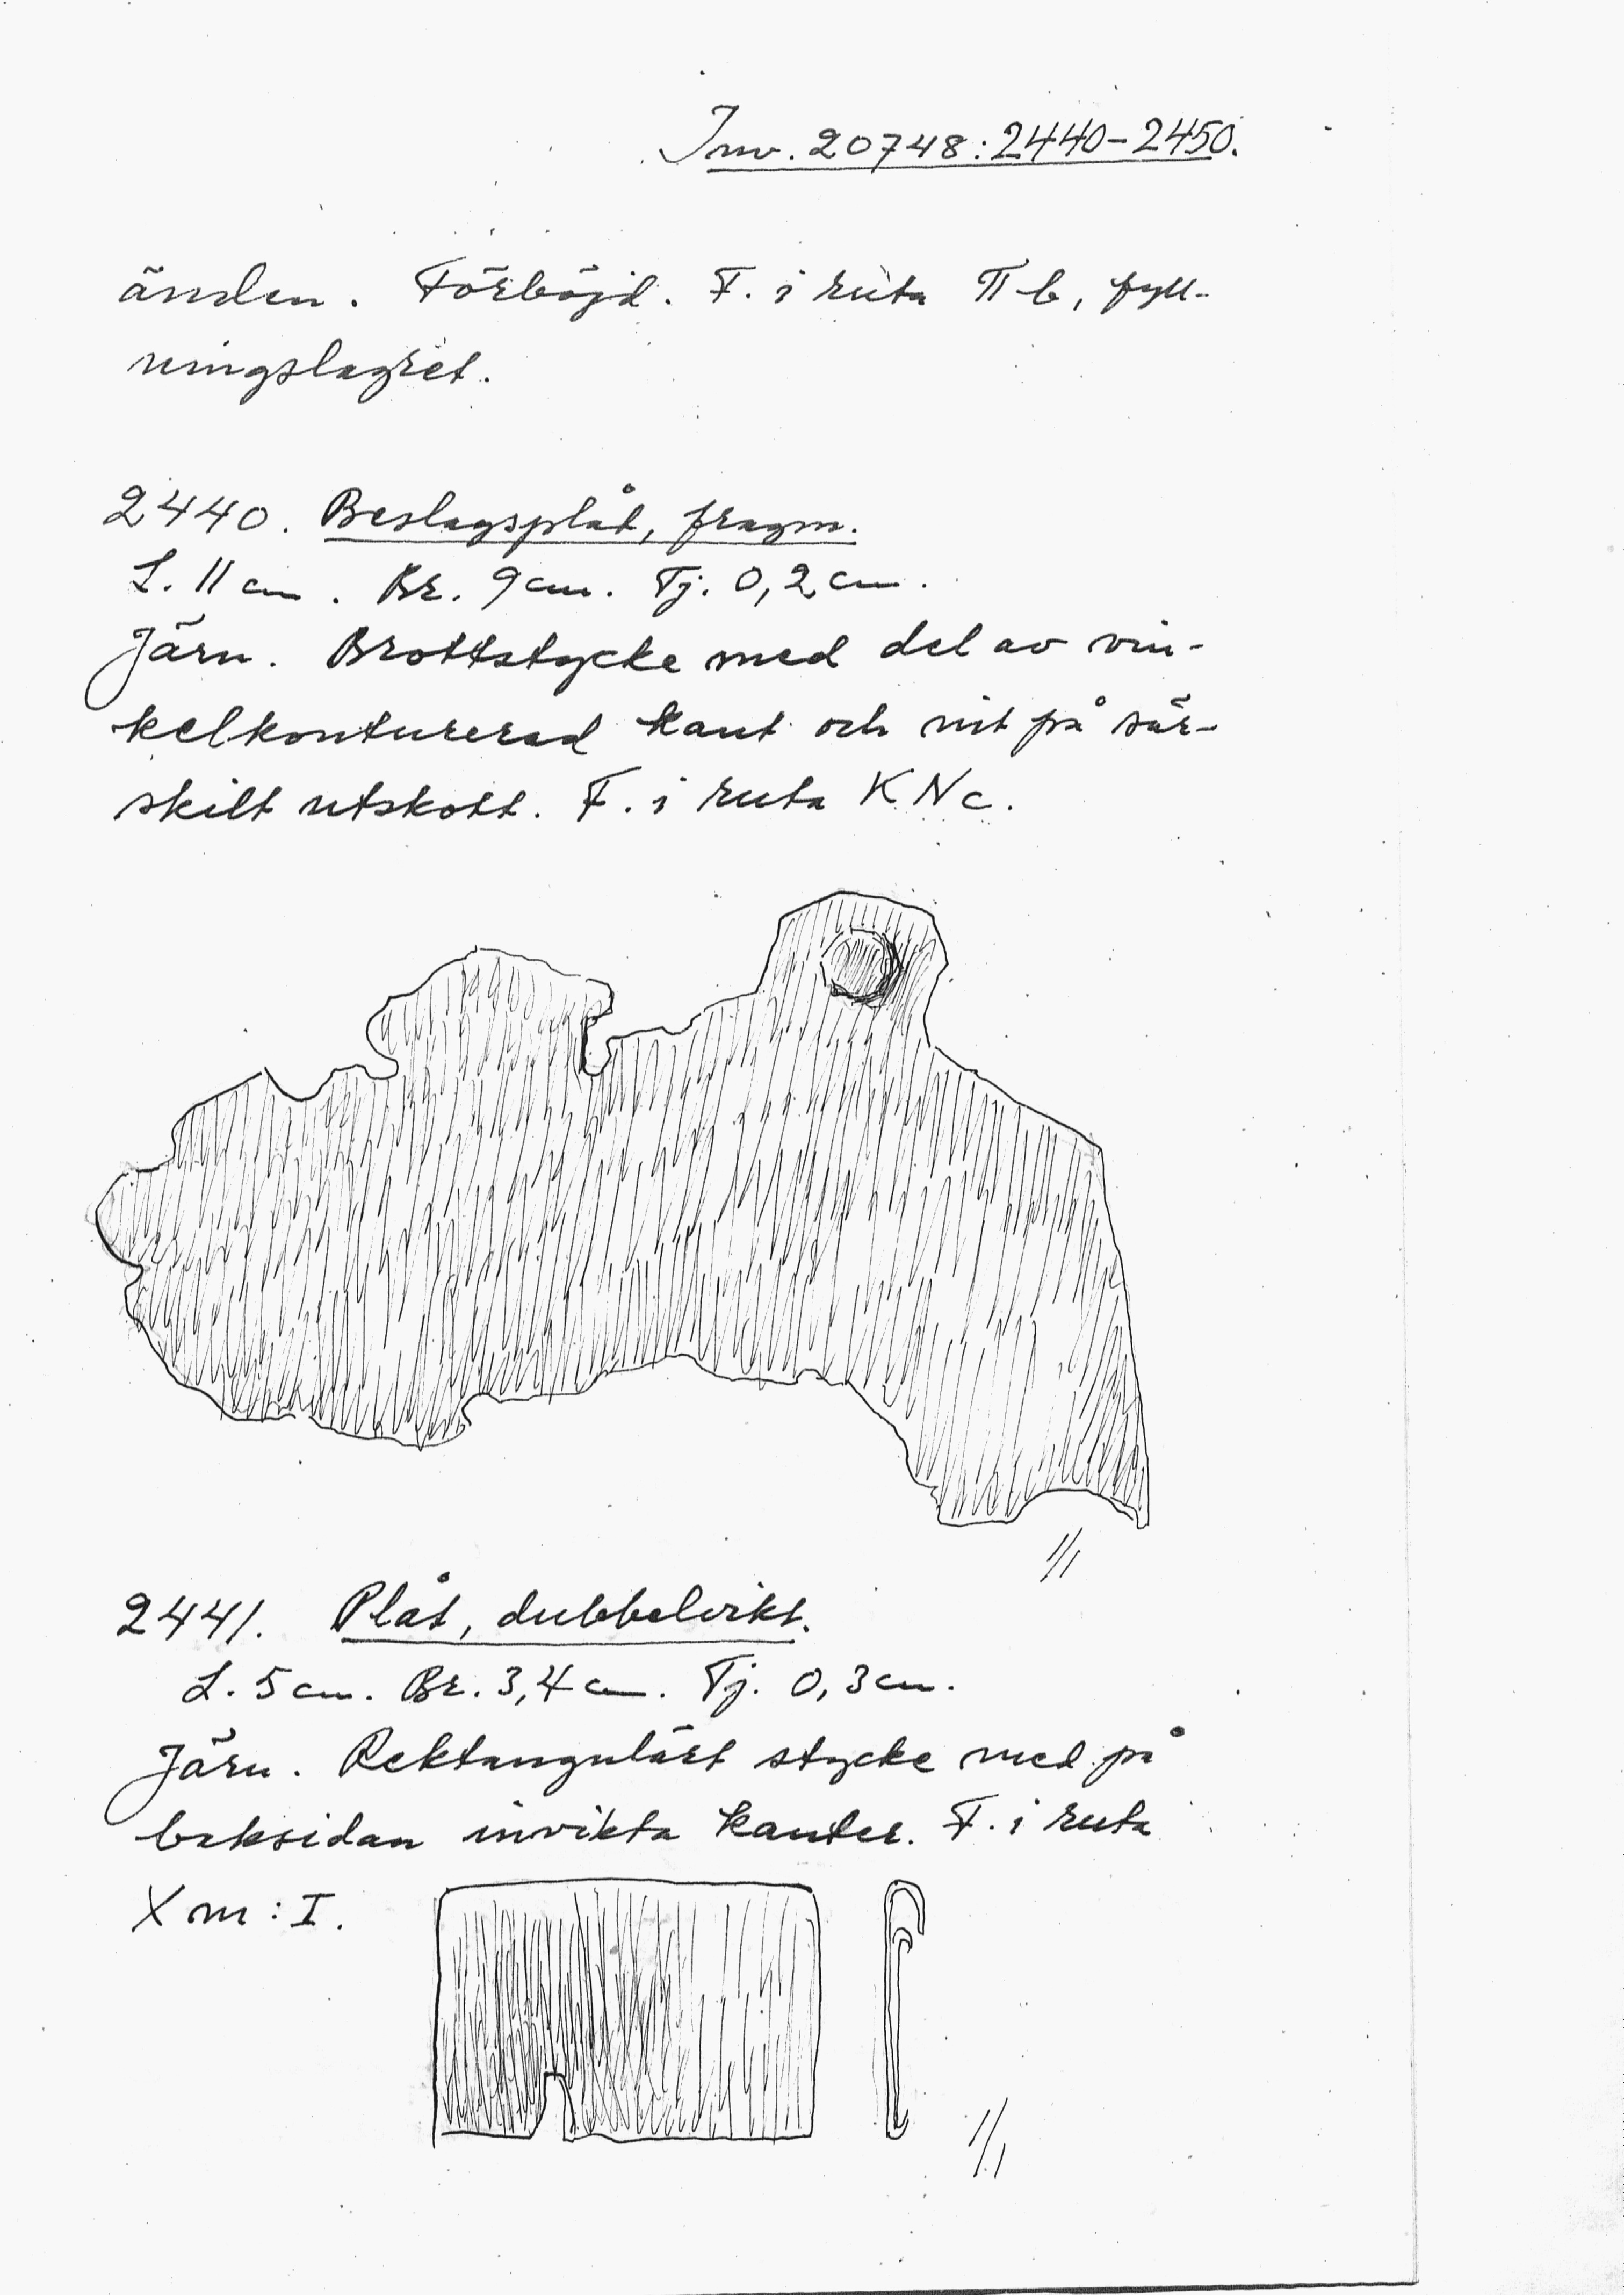 Inv. 20748:2440-2450.
änden. Förböjd. F. i ruta II b, fyll-
ningslagret.
2440. Beslagsplåt, fragm.
L. 11 cm. Br. 9 cm. Tj. 0,2 cm.
Järn. Brottstycke med del av vin-
kelkonturerad kant och nit på sär-
skilt utskott. F. i ruta K N c.
1/1
2441. Plåt, dubbelvikt.
L. 5 cm. Br. 3,4 cm. Tj. 0,3 cm.
Järn. Rektangulärt stycke med på
baksidan invikta kanter. F. i ruta
X m : I.
1/1